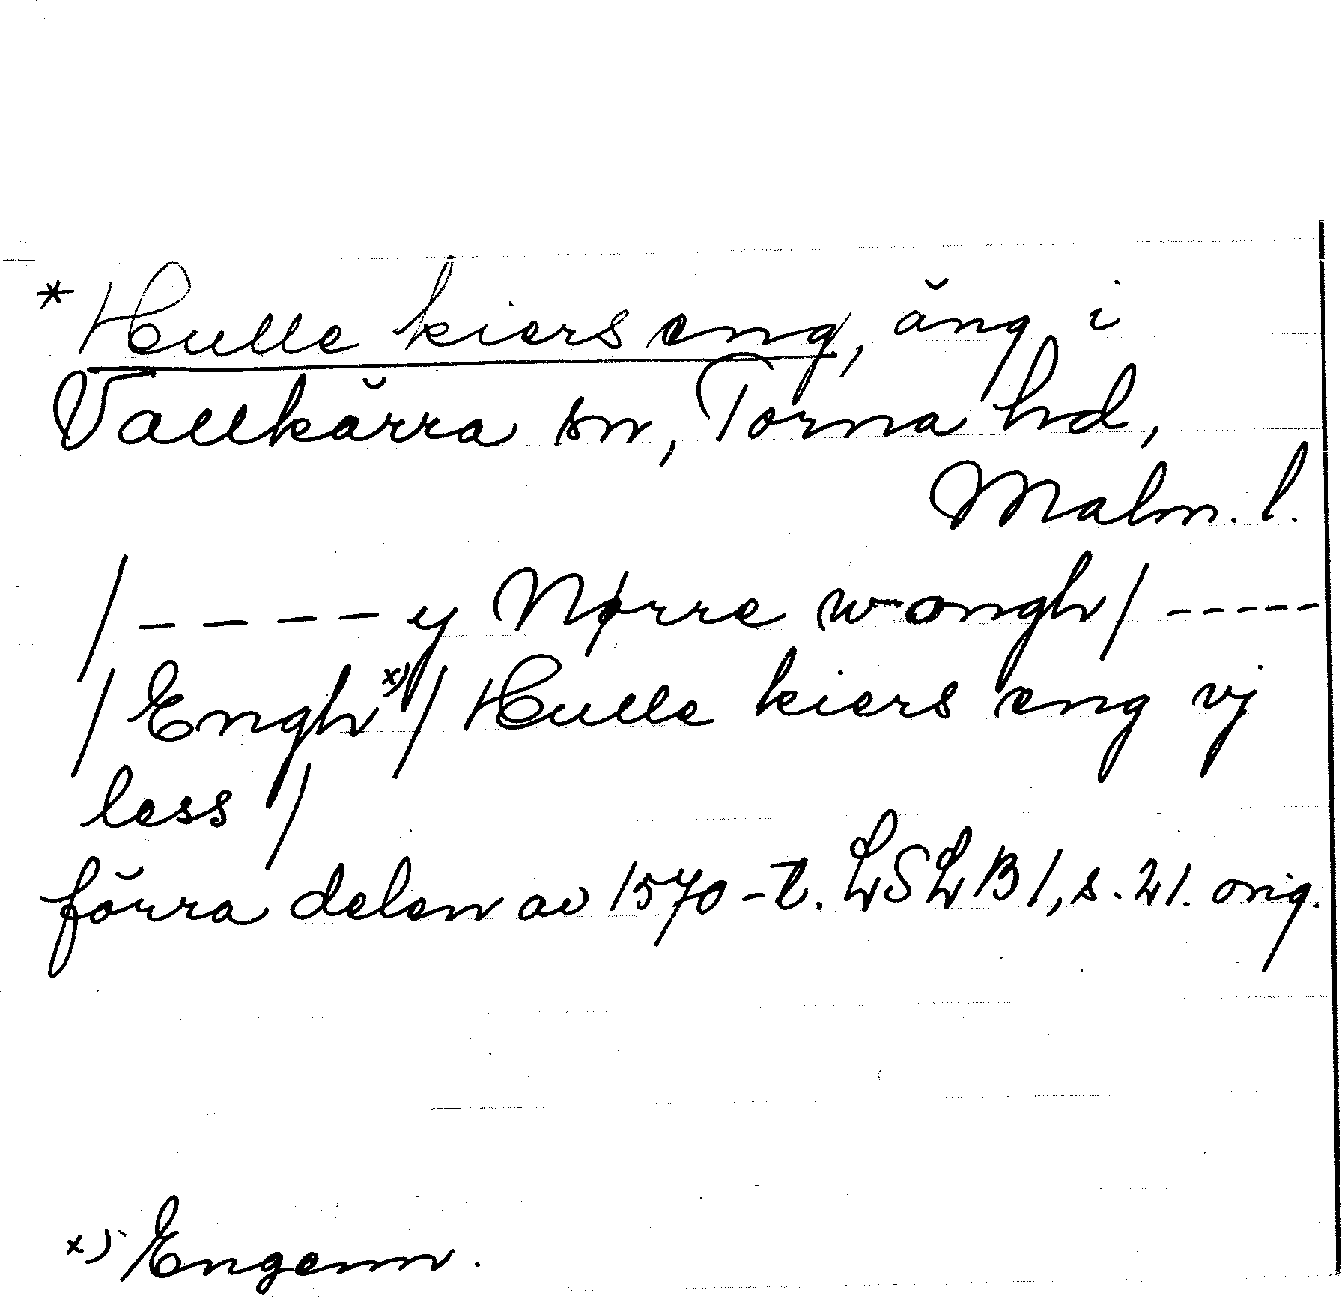 *Hulle kiers eng, äng i
Vallkärra sn, Torna hd,
Malm. l.
/ - - - - y Nørre wongh / - - - - -
/ Engh x) / Hulle kiers eng vj
less /
förra delen av 1570-t. LSLB 1, s. 21. orig.
x) Engenn.